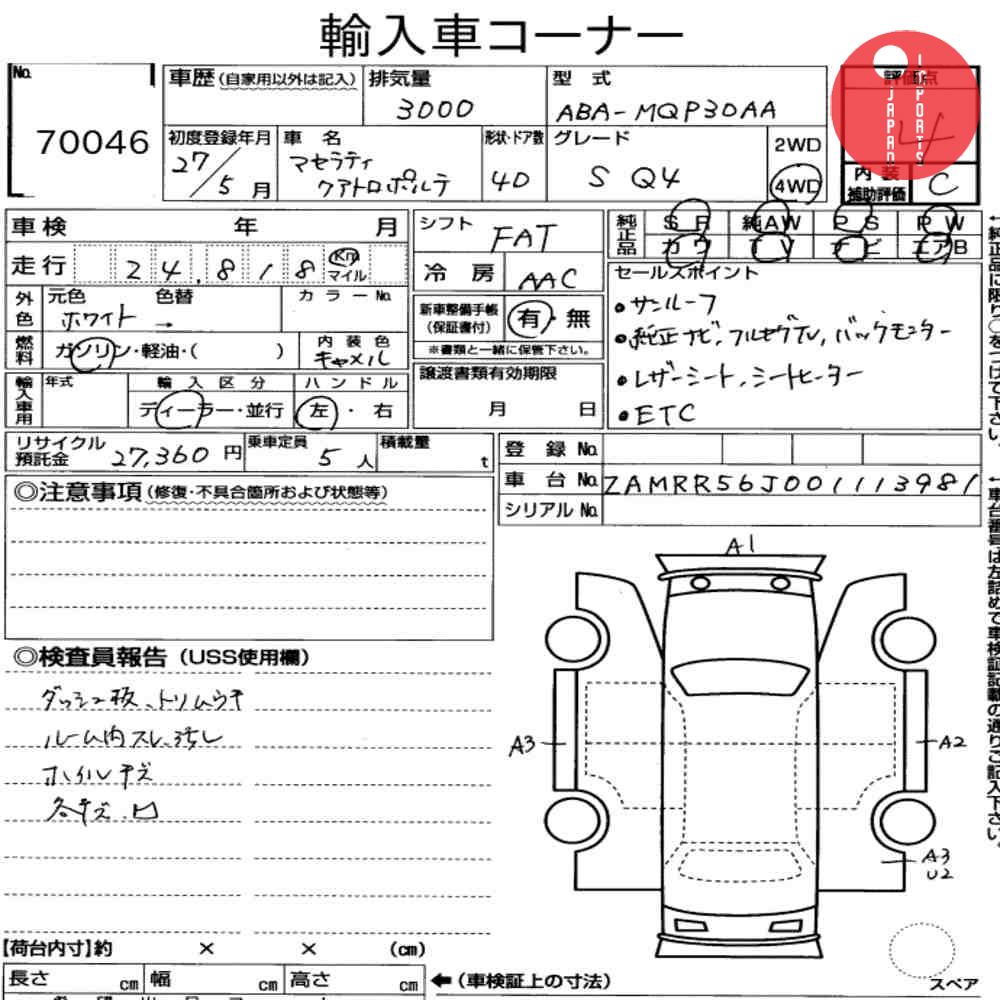 輸入車コーナー
No. 70046
車歴 (自家用以外は記入)
排気量 3000
型式 ABA-MQP30AA
評価点 4
JAPAN IMPORTS
初度登録年月 27/5月
車名 マセラティ クアトロポルテ
形状・ドア数 4D
グレード S Q4
2WD
4WD
内装補助評価 C
車検 年 月
走行 24,818 Km マイル
シフト FAT
冷房 AAC
純正品 SR 純AW PS PW
カワ TV ナビ エアB
←純正品に限り○をつけて下さい。
外色 元色 ホワイト 色替 → カラーNo.
燃料 ガソリン・軽油・( )
内装色 キャメル
新車整備手帳(保証書付) 有・無
※書類と一緒に保管下さい。
セールスポイント
・サンルーフ
・純正ナビ、フルセグTV、バックモニター
・レザーシート、シートヒーター
・ETC
輸入車用 年式 輸入区分 ディーラー・並行 ハンドル 左・右
譲渡書類有効期限 月 日
リサイクル預託金 27,360円
乗車定員 5人
積載量 t
登録No.
車台No. ZAMRR56J001113981
シリアルNo.
←車台番号は左詰めで車検証記載の通りご記入下さい。
◎注意事項 (修復・不具合箇所および状態等)
◎検査員報告 (USS使用欄)
ダッシュ板、トリムウキ
ルーム内スレ、汚レ
ホイルキズ
各キズ、凹
A1
A3
A2
A3
U2
スペア
【荷台内寸】約 × × (cm)
長さ cm 幅 cm 高さ cm
←(車検証上の寸法)